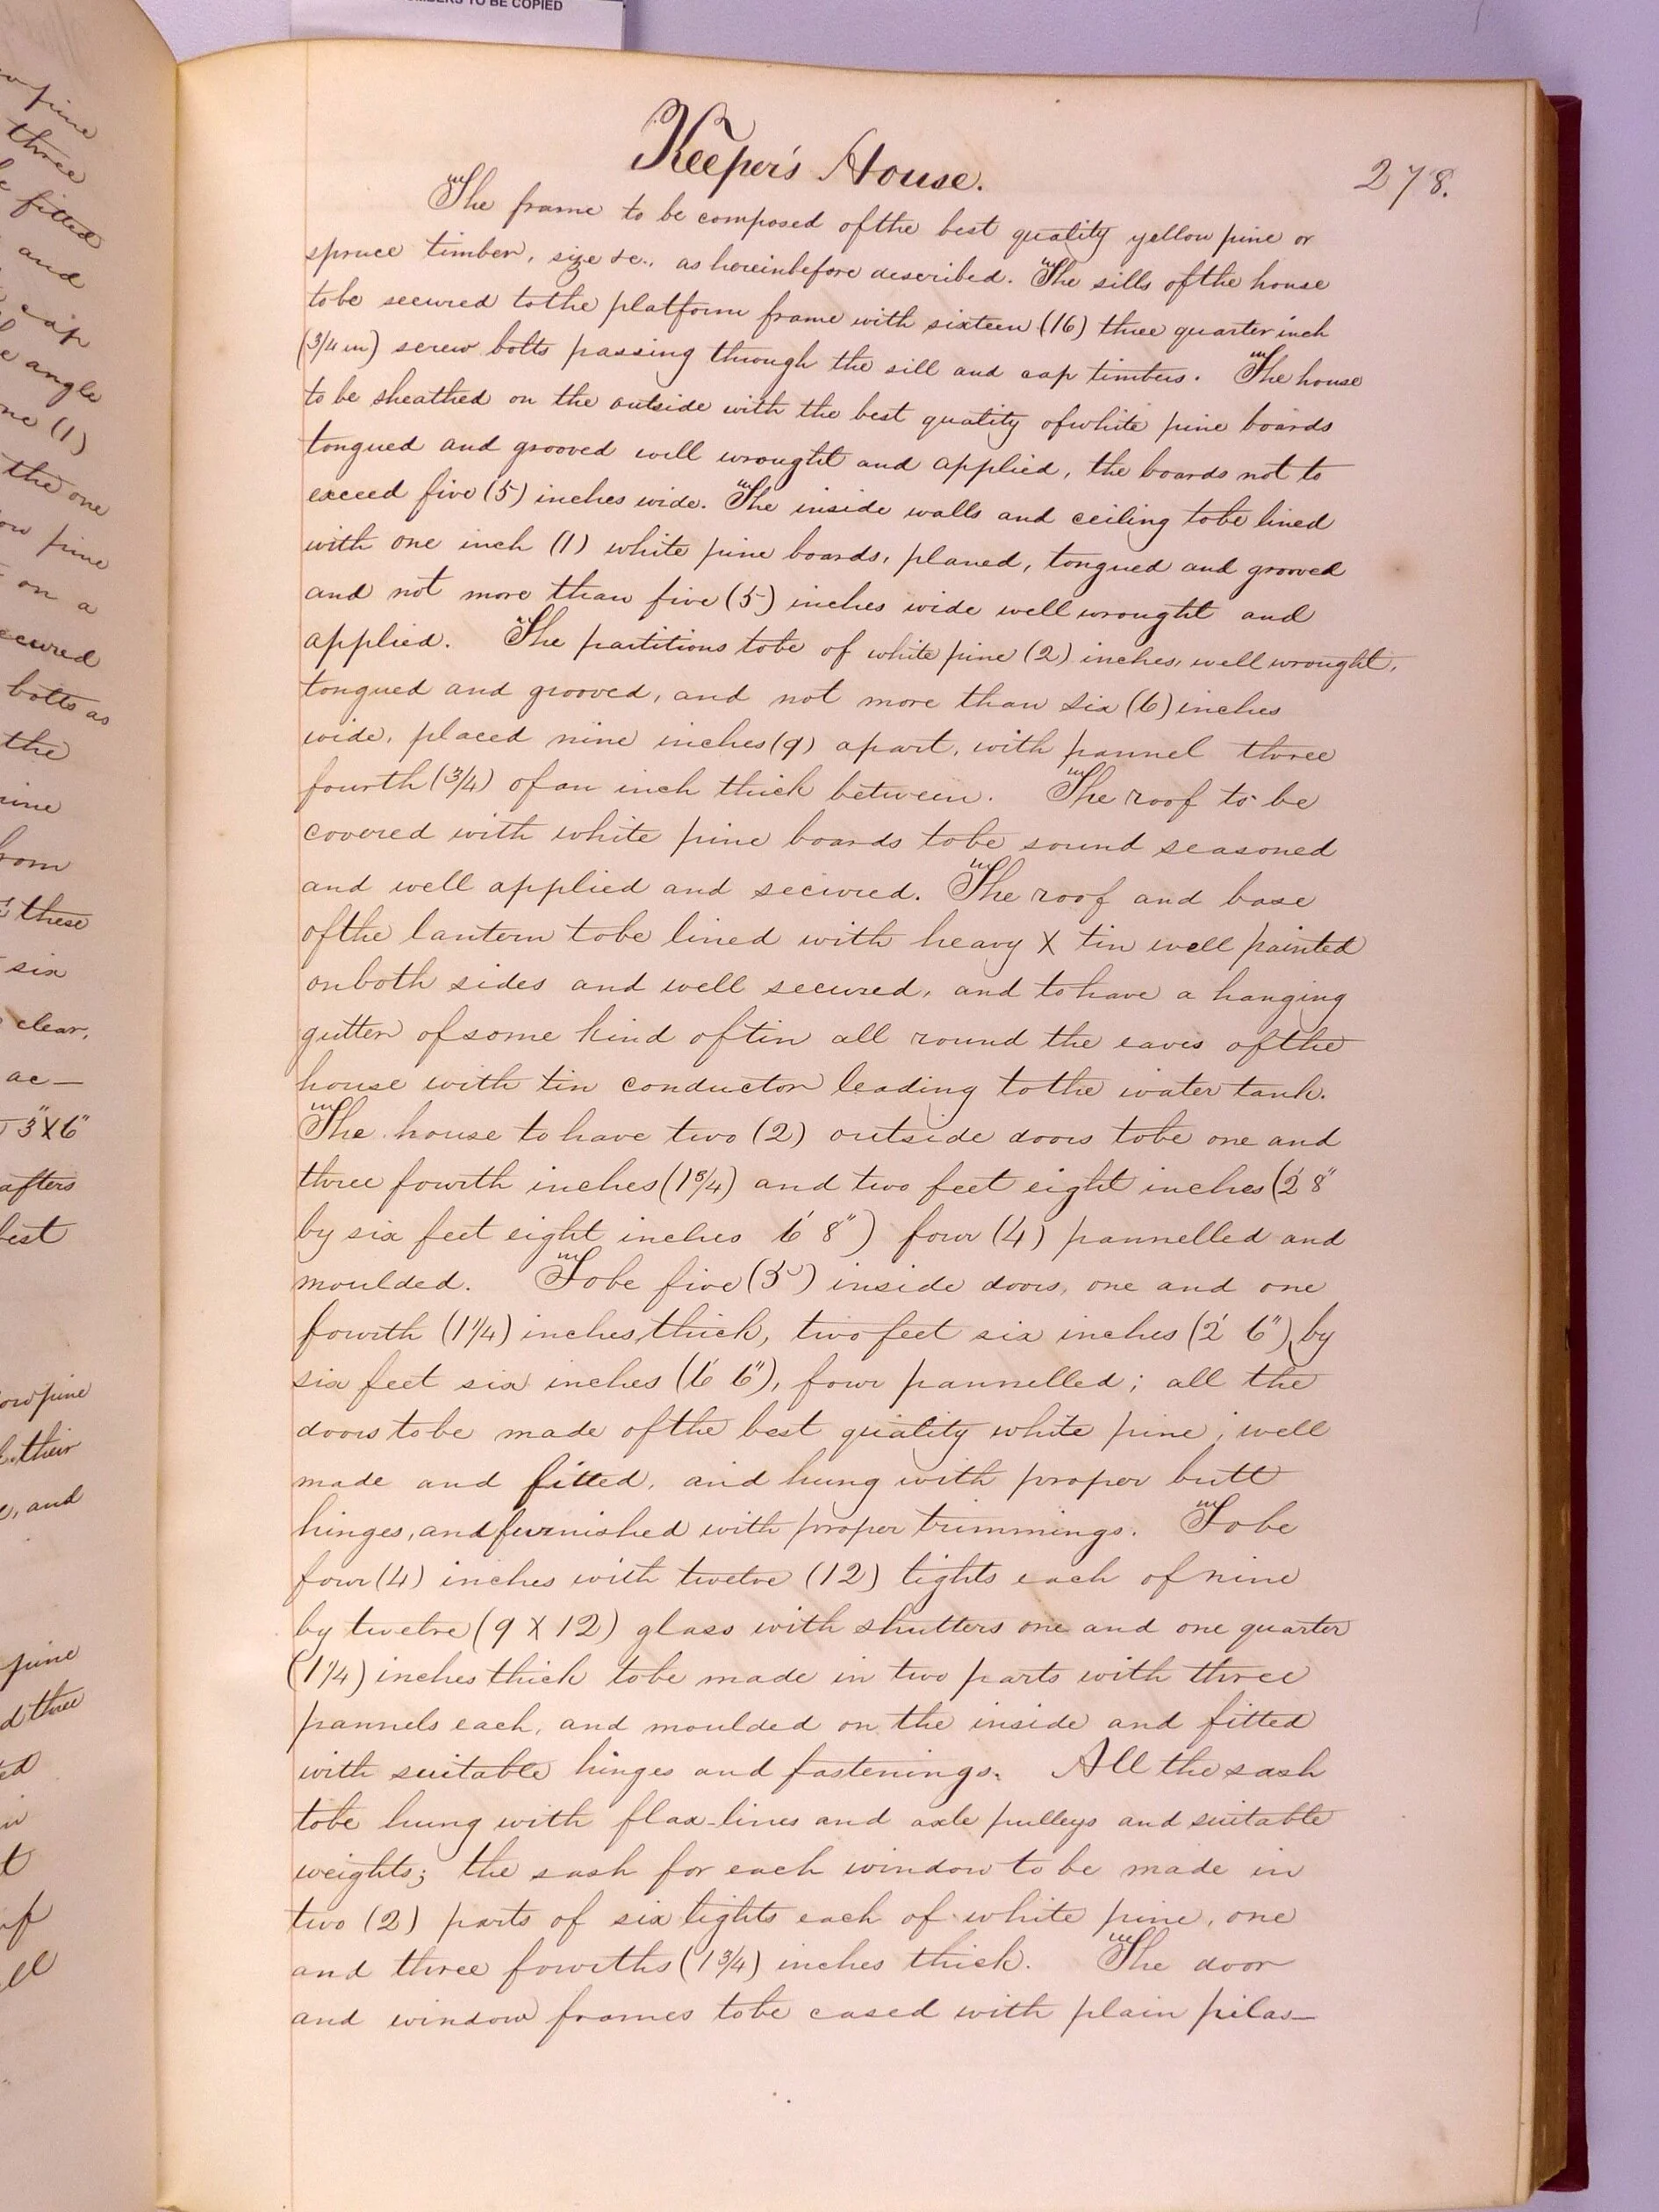 MBERS TO BE COPIED
pine
three
fitted
and
cap
angle
(1)
the one
pine
on a
secured
bolts as
the
these
six
clear,
ac—
3"X6"
pine
their
and
pine
Keeper's House.
278.
The frame to be composed of the best quality yellow pine or
spruce timber, size &c., as hereinbefore described. The sills of the house
to be secured to the platform frame with sixteen (16) three quarter inch
(3/4 in) screw bolts passing through the sill and cap timbers. The house
to be sheathed on the outside with the best quality of white pine boards
tongued and grooved well wrought and applied, the boards not to
exceed five (5) inches wide. The inside walls and ceiling to be lined
with one inch (1) white pine boards, planed, tongued and grooved
and not more than five (5) inches wide well wrought and
applied. The partitions to be of white pine (2) inches, well wrought,
tongued and grooved, and not more than six (6) inches
wide, placed nine inches (9) apart, with pannel three
fourth (3/4) of an inch thick between. The roof to be
covered with white pine boards to be sound seasoned
and well applied and secured. The roof and base
of the lantern to be lined with heavy X tin well painted
on both sides and well secured, and to have a hanging
gutter of some kind of tin all round the eaves of the
house with tin conductor leading to the water tank.
The house to have two (2) outside doors to be one and
three fourth inches (1 3/4) and two feet eight inches (2' 8"
by six feet eight inches 6' 8") four (4) pannelled and
moulded. To be five (5) inside doors, one and one
fourth (1 1/4) inches thick, two feet six inches (2' 6"), by
six feet six inches (6' 6"), four pannelled; all the
doors to be made of the best quality white pine, well
made and fitted, and hung with proper butt
hinges, and furnished with proper trimmings. To be
four (4) inches with twelve (12) lights each of nine
by twelve (9 X 12) glass with shutters one and one quarter
(1 1/4) inches thick to be made in two parts with three
pannels each, and moulded on the inside and fitted
with suitable hinges and fastenings. All the sash
to be hung with flax-lines and axle pulleys and suitable
weights; the sash for each window to be made in
two (2) parts of six lights each of white pine, one
and three fourths (1 3/4) inches thick. The door
and window frames to be cased with plain pilas—